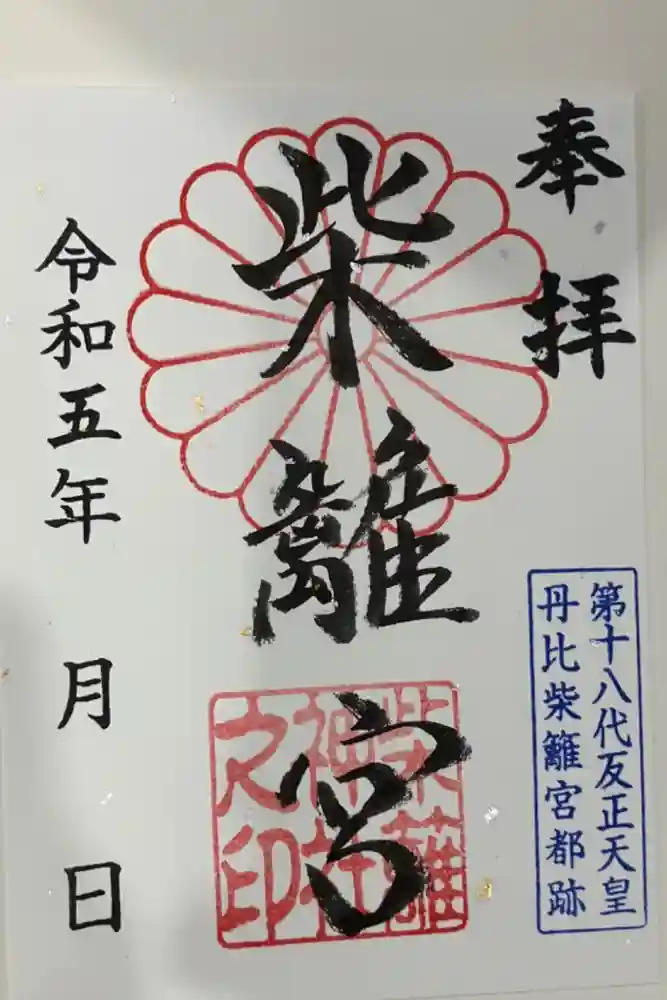 奉拝
柴離宮
柴籬
神社
之印
第十八代反正天皇
丹比柴籬宮都跡
令和五年 月 日